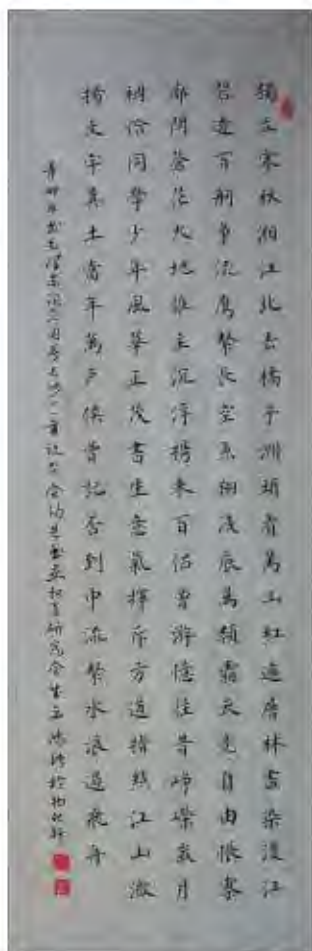 獨立寒秋湘江北去橘子洲頭看萬山紅遍層林盡染漫江
碧透百舸爭流鷹擊長空魚翔淺底萬類霜天競自由悵寥
廓問蒼茫大地誰主沉浮攜來百侣曾游憶往昔崢嶸歲月
稠恰同學少年風華正茂書生意氣揮斥方遒指點江山激
揚文字糞土當年萬户侯曾記否到中流擊水浪遏飛舟
辛卯年書毛澤東詞沁園春長沙一首